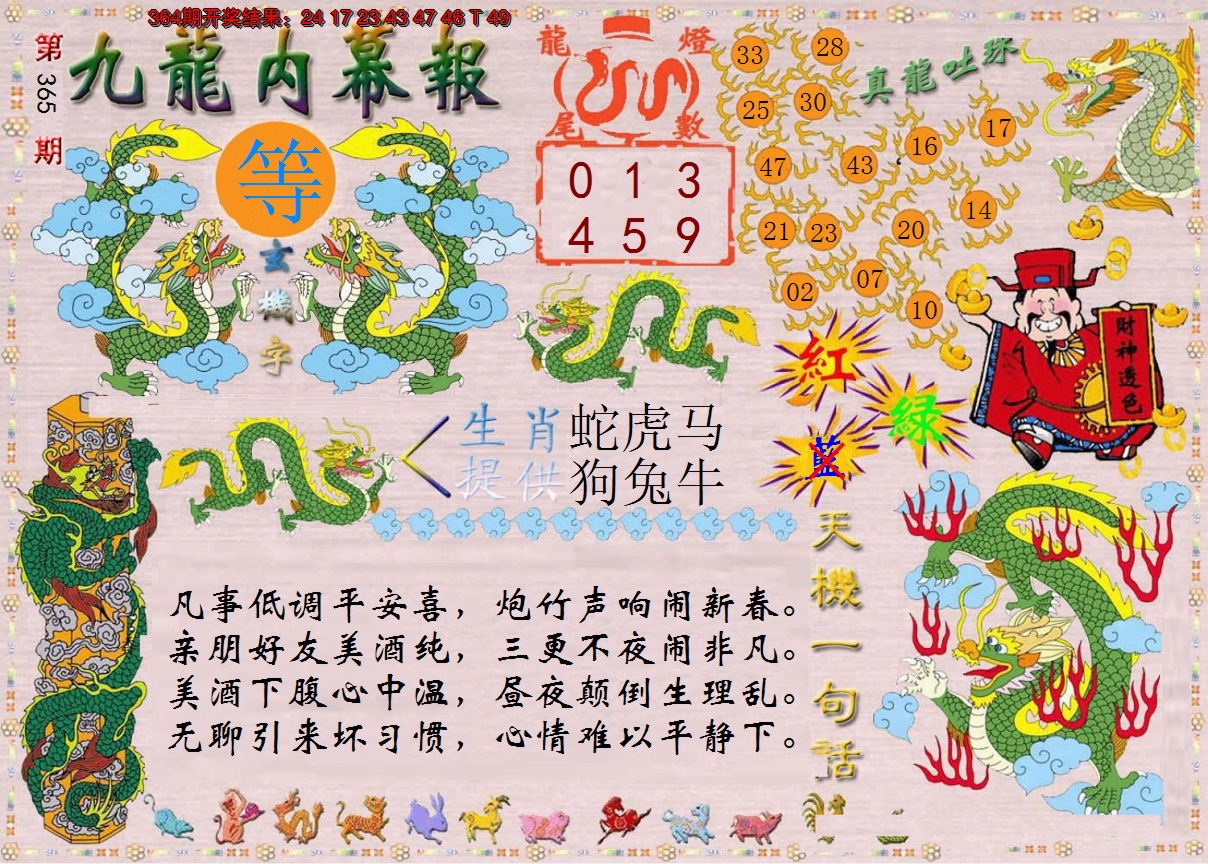 364期开奖结果：24 17 23 43 47 46 T 49
第365期
九龍内幕報
等
玄機字
龍燈尾數
0 1 3
4 5 9
真龍吐珠
33
28
25
30
47
43
16
17
21
23
20
14
02
07
10
財神透色
紅
綠
藍
生肖 蛇虎马
提供 狗兔牛
天機一句話
凡事低调平安喜，炮竹声响闹新春。
亲朋好友美酒纯，三更不夜闹非凡。
美酒下腹心中温，昼夜颠倒生理乱。
无聊引来坏习惯，心情难以平静下。